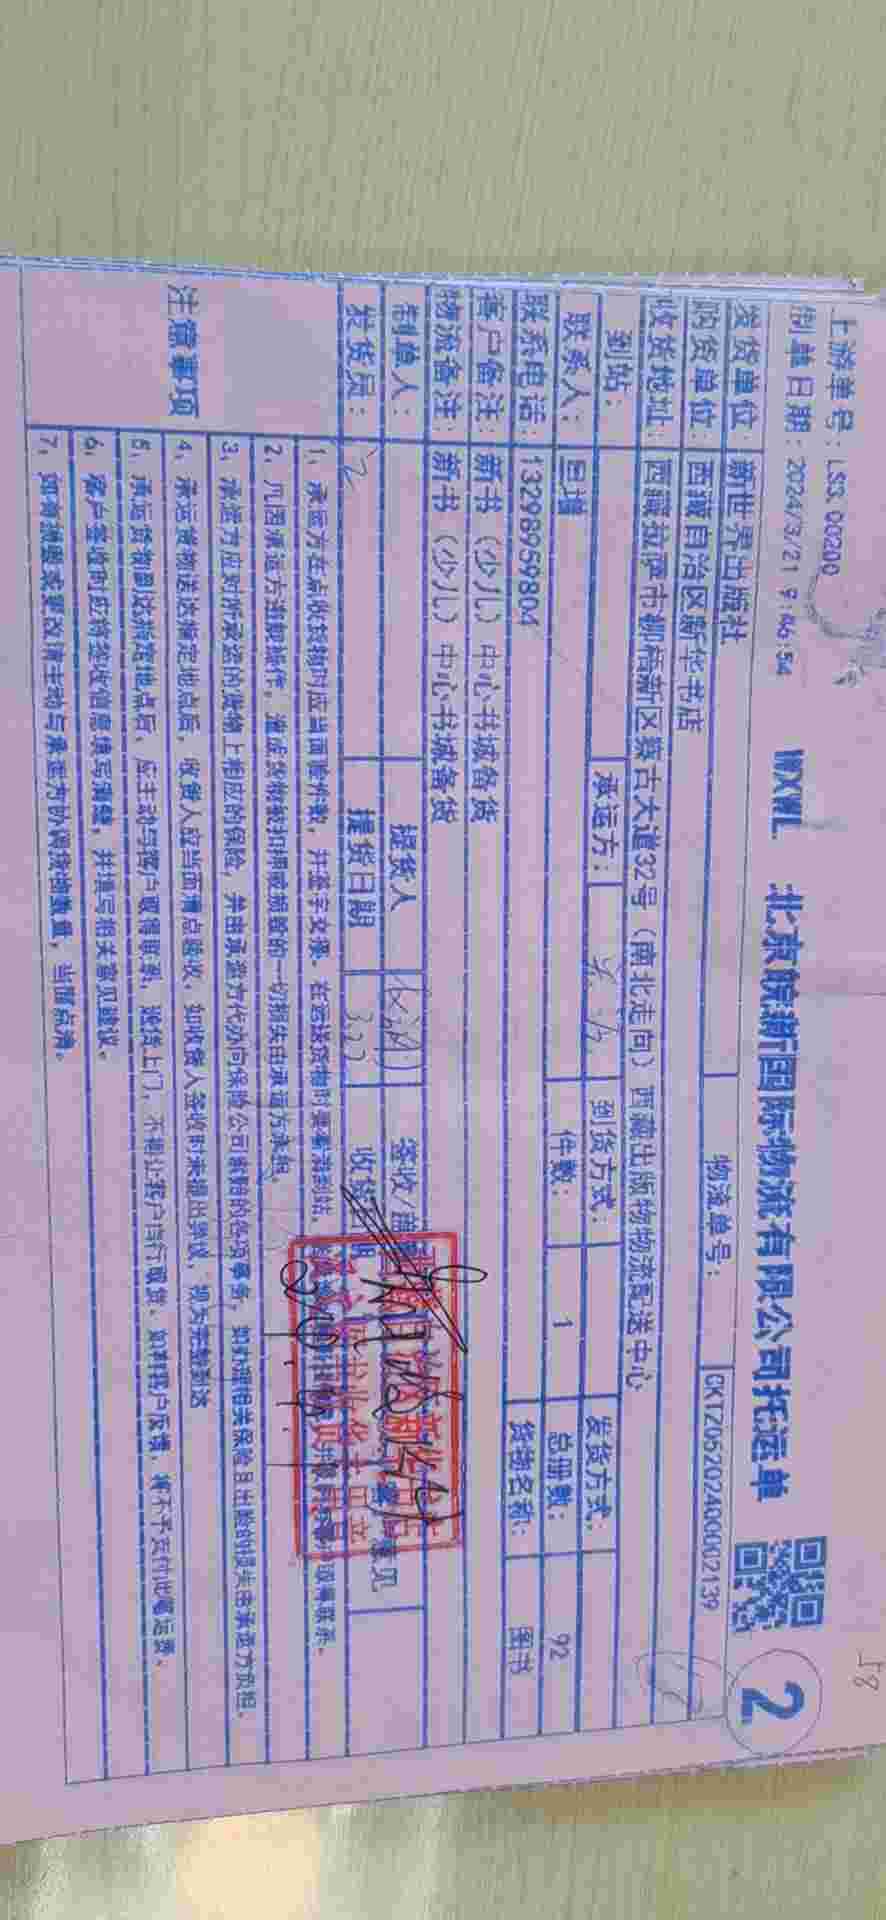 上游单号: LSS 00200
制单日期: 2024/3/21 9:46:54
WXWL 北京皖新国际物流有限公司托运单
2
58
发货单位: 新世界出版社
物流单号: CKTZ0520240002139
收货单位: 西藏自治区新华书店
收货地址: 西藏拉萨市柳梧新区蒙古大道32号（南北走向）西藏出版物物流配送中心
到站: 承运方: 到货方式: 发货方式:
联系人: 旦增 件数: 1 总册数: 92
联系电话: 13298959804 货物名称: 图书
客户备注: 新书（少儿）中心书城备货
物流备注: 新书（少儿）中心书城备货
制单人: 提货人 签收/ 意见
发货员: 提货日期 3.22 收货日期
注意事项
1、承运方在点收货物时应当面验件数，并签字交接。在运送货物时要看清到站、 联系。
2、凡因承运方违规操作，造成货物被扣押或损毁的一切损失由承运方承担。
3、承运方应对所承运的货物上相应的保险，并由承运方代办向保险公司索赔的各项事务，如未办理相关保险且出险的损失由承运方负担。
4、承运货物送达指定地点后，收货人应当面清点验收，如收货人签收时未提出异议，视为完整到达
5、承运货物到达指定地点后，应主动与客户取得联系，送货上门，不得让客户自行取货。如有客户反馈，将不予支付此笔运费。
6、客户签收时应将签收信息填写清楚，并填写相关意见建议。
7、如有热线要求更改请主动与承运方协调货物数量，当面点清。